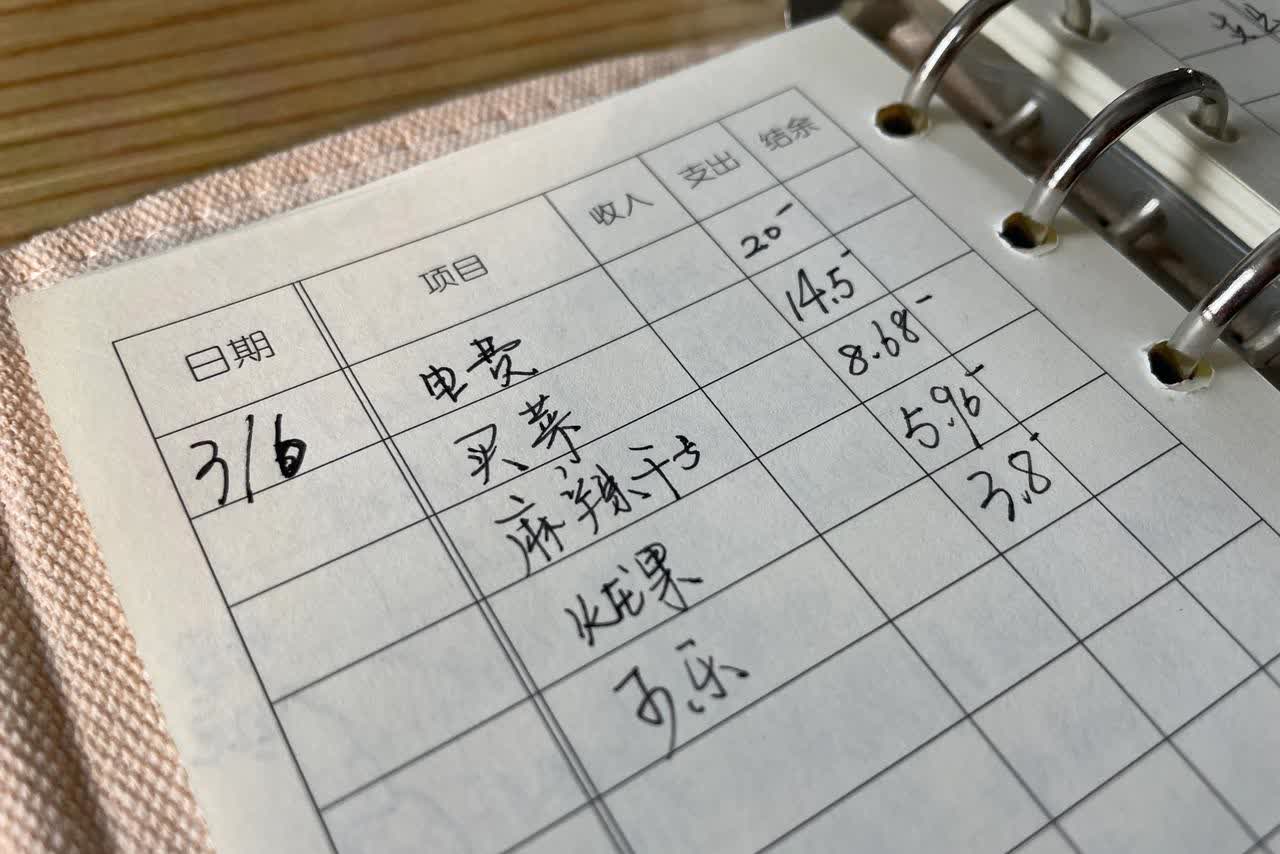 日期 项目 收入 支出 结余
3/6 电费 20-
买菜 14.5-
麻辣干 8.68-
果 5.96-
可乐 3.8-